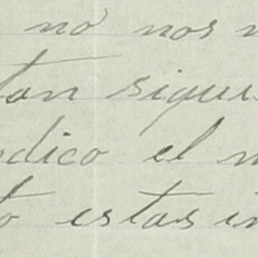 no nos
tan sigui
dico el
to estas in